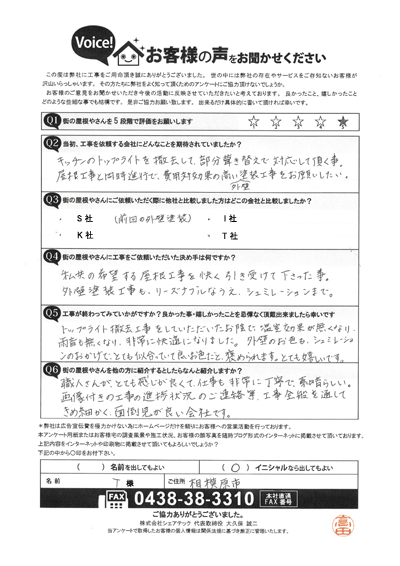 Voice!
お客様の声をお聞かせください
この度は弊社に工事をご用命頂き誠にありがとうございました。世の中には弊社の存在やサービスをご存知ないお客様が
沢山いらっしゃいます。その方たちに弊社をよく知って頂くためのアンケートにご協力頂けないでしょうか。
お客様のご意見をお聞かせいただき今後の活動に反映させていただきたいと考えております。良かったこと、嬉しかったこと
どのような些細な事でも結構です。是非ご協力お願い致します。出来るだけ具体的に書いて頂ければ幸いです。
Q1 街の屋根やさんを5段階で評価をお願いします ☆ ☆ ☆ ☆ ★
Q2 当初、工事を依頼する会社にどんなことを期待されていましたか?
キッチンのトップライトを撤去して、部分葺き替えで対応して頂く事。
屋根工事と同時進行で、費用対効果の高い塗装工事をお願いしたい。
外壁
Q3 街の屋根やさんにご依頼いただく際に他社と比較しました方はどこの会社と比較しましたか?
・S社 (前回の外壁塗装) ・I社
・K社 ・T社
Q4 街の屋根やさんに工事をご依頼いただいた決め手は何ですか?
私共の希望する屋根工事を快く引き受けて下さった事。
外壁塗装工事も、リーズナブルなうえ、シュミレーションまで。
Q5 工事が終わってみていかがですか?良かった事・嬉しかったことを忌憚なく頂戴出来ましたら幸いです
トップライト撤去工事をしていただいたお陰で、温室効果が無くなり、
雨音も無くなり、非常に快適になりました。外壁のお色も、シュミレーション
のおかげで、とても似合っていて良いお色だと、褒められます。とても嬉しいです。
Q6 街の屋根やさんを他の方に紹介するとしたらなんと紹介しますか?
職人さんが、とても感じが良くて、仕事も非常に丁寧で、素晴らしい。
画像付きの工事の進捗状況のご連絡等、工事全般を通して
きめ細かく、面倒見が良い会社です。
*弊社は広告宣伝費を極力かけない為にホームページだけを頼りにお客様への営業活動を行っております。
本アンケート用紙またはお客様宅の調査風景や施工状況、お客様の顔写真を随時ブログ形式のインターネットに掲載させて頂いております。
上記内容をインターネットや印刷物に掲載させて頂いてもよろしいでしょうか?
下記の中から〇印をお付下さい。
( )名前を出してもよい (〇)イニシャルなら出してもよい
T 様 ご住所 相模原市
FAX 0438-38-3310 本社直通 FAX番号
ご協力ありがとうございました。
株式会社シェアテック 代表取締役 大久保 誠二
当アンケートで取得したお客様の個人情報は関係法規に基づき厳正に管理いたします。